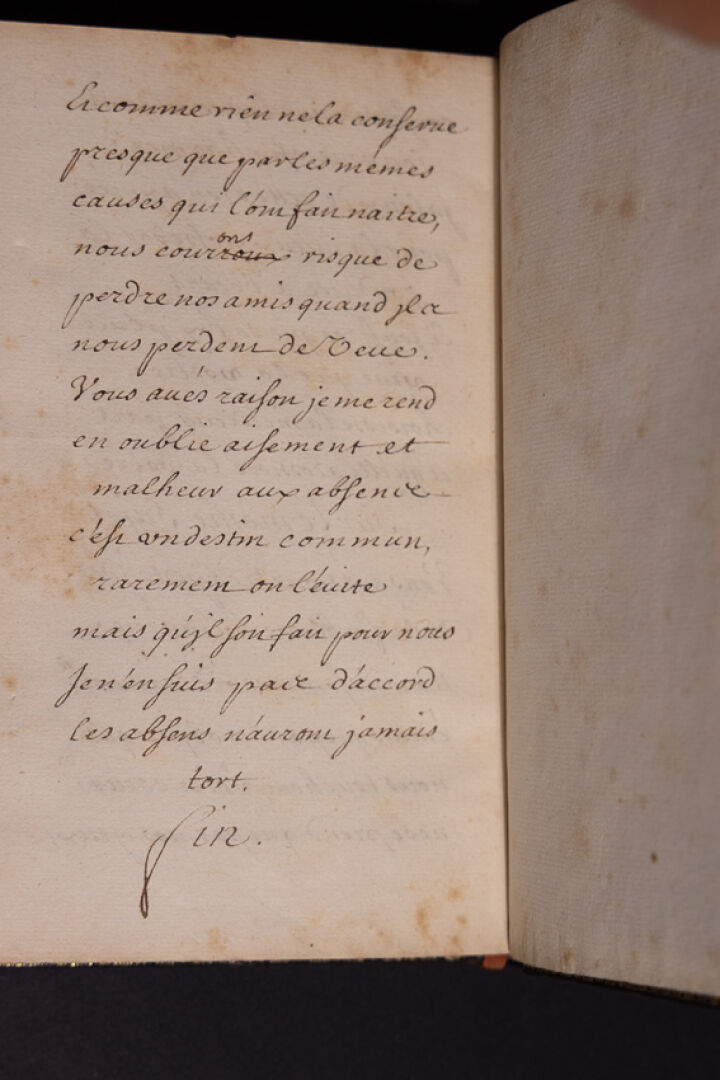 Et comme rien ne la conserve
presque que par les mémes
causes qui l'ont fait naitre,
nous courrons risque de
perdre nos amis quand jl a
nous perdent de veue.
Vous avés raison je me rend
en oublie aisement et
malheur aux absence
c'est un destin commun,
rarement on l'évite
mais qu'jl soit fait pour nous
Je n'en suis pace d'accord
les absens n'auront jamais
tort.
fin.